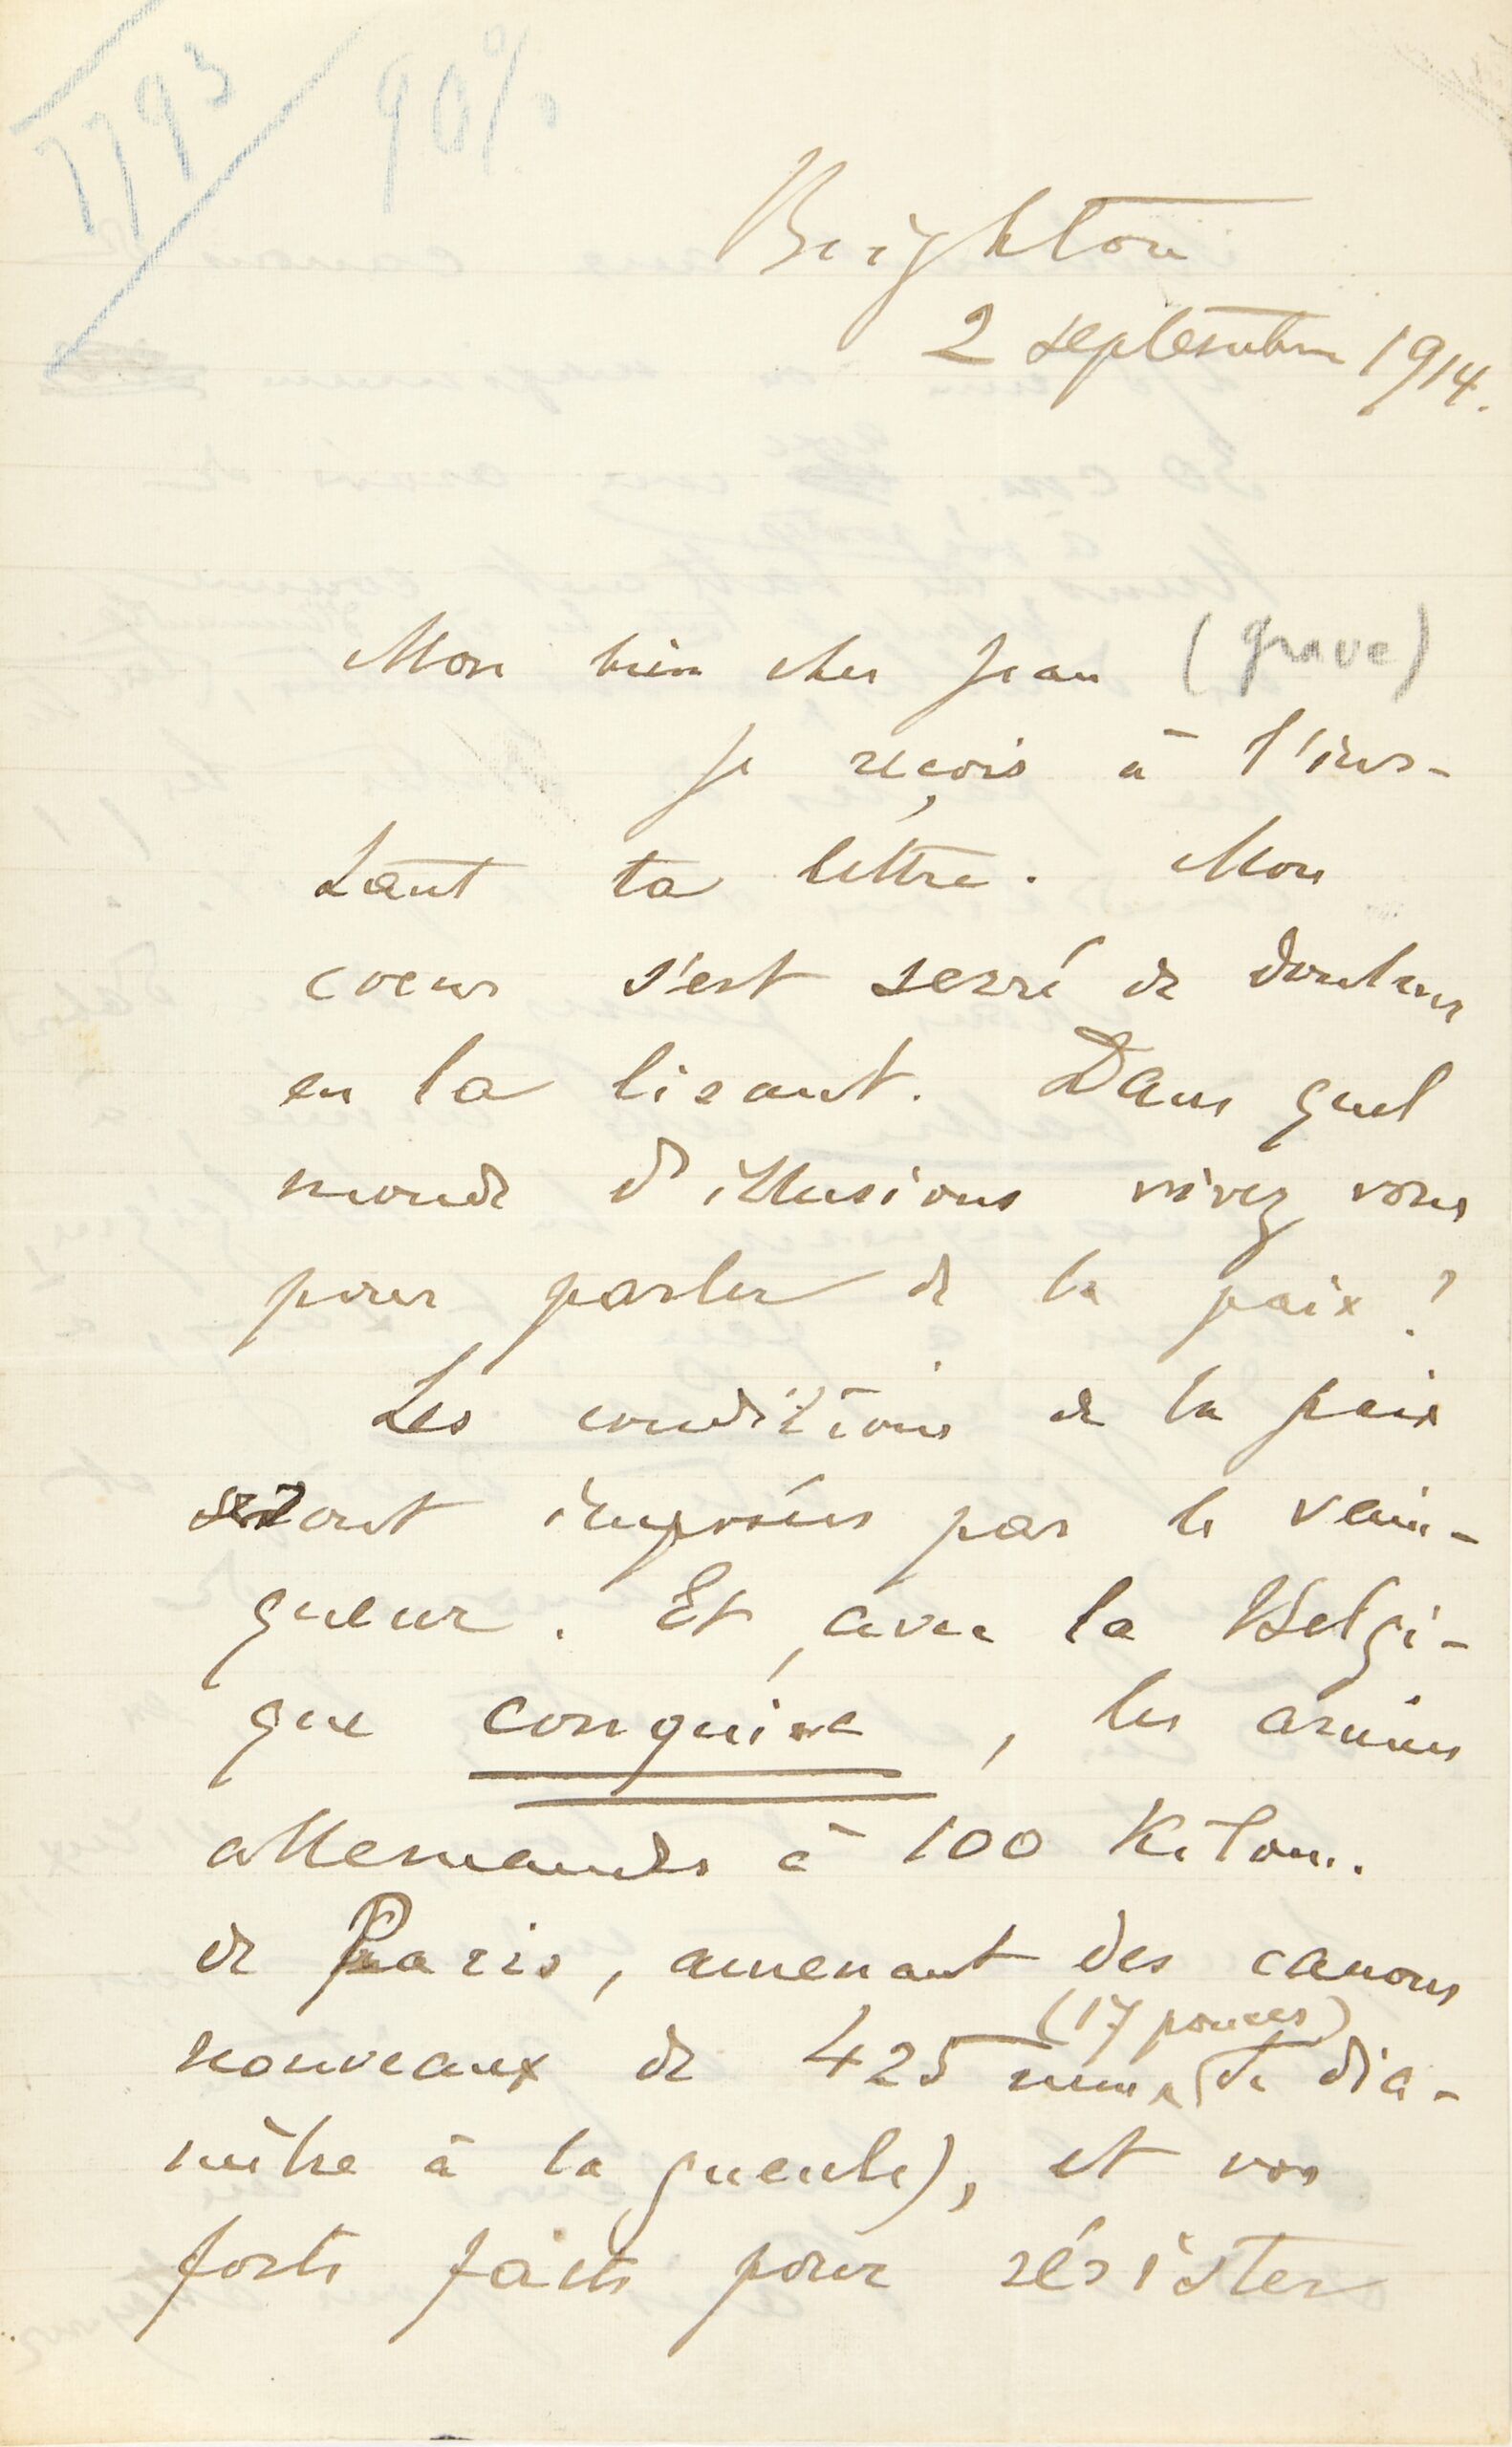 7793
90%
Brighton
2 septembre 1914.
Mon bien cher Jean (grave)
Je reçois à l'ins-
tant ta lettre. Mon
coeur s'est serré de douleur
en la lisant. Dans quel
monde d'illusions vivez vous
pour parler de la paix ?
Les conditions de la paix
seront imposées par le vain-
queur. Et, avec la Belgi-
que conquise, les armées
allemandes à 100 kilom.
de Paris, amenant des canons
(17 pouces)
nouveaux de 425 mm (de dia-
mètre à la gueule), et vos
forts faits pour résister